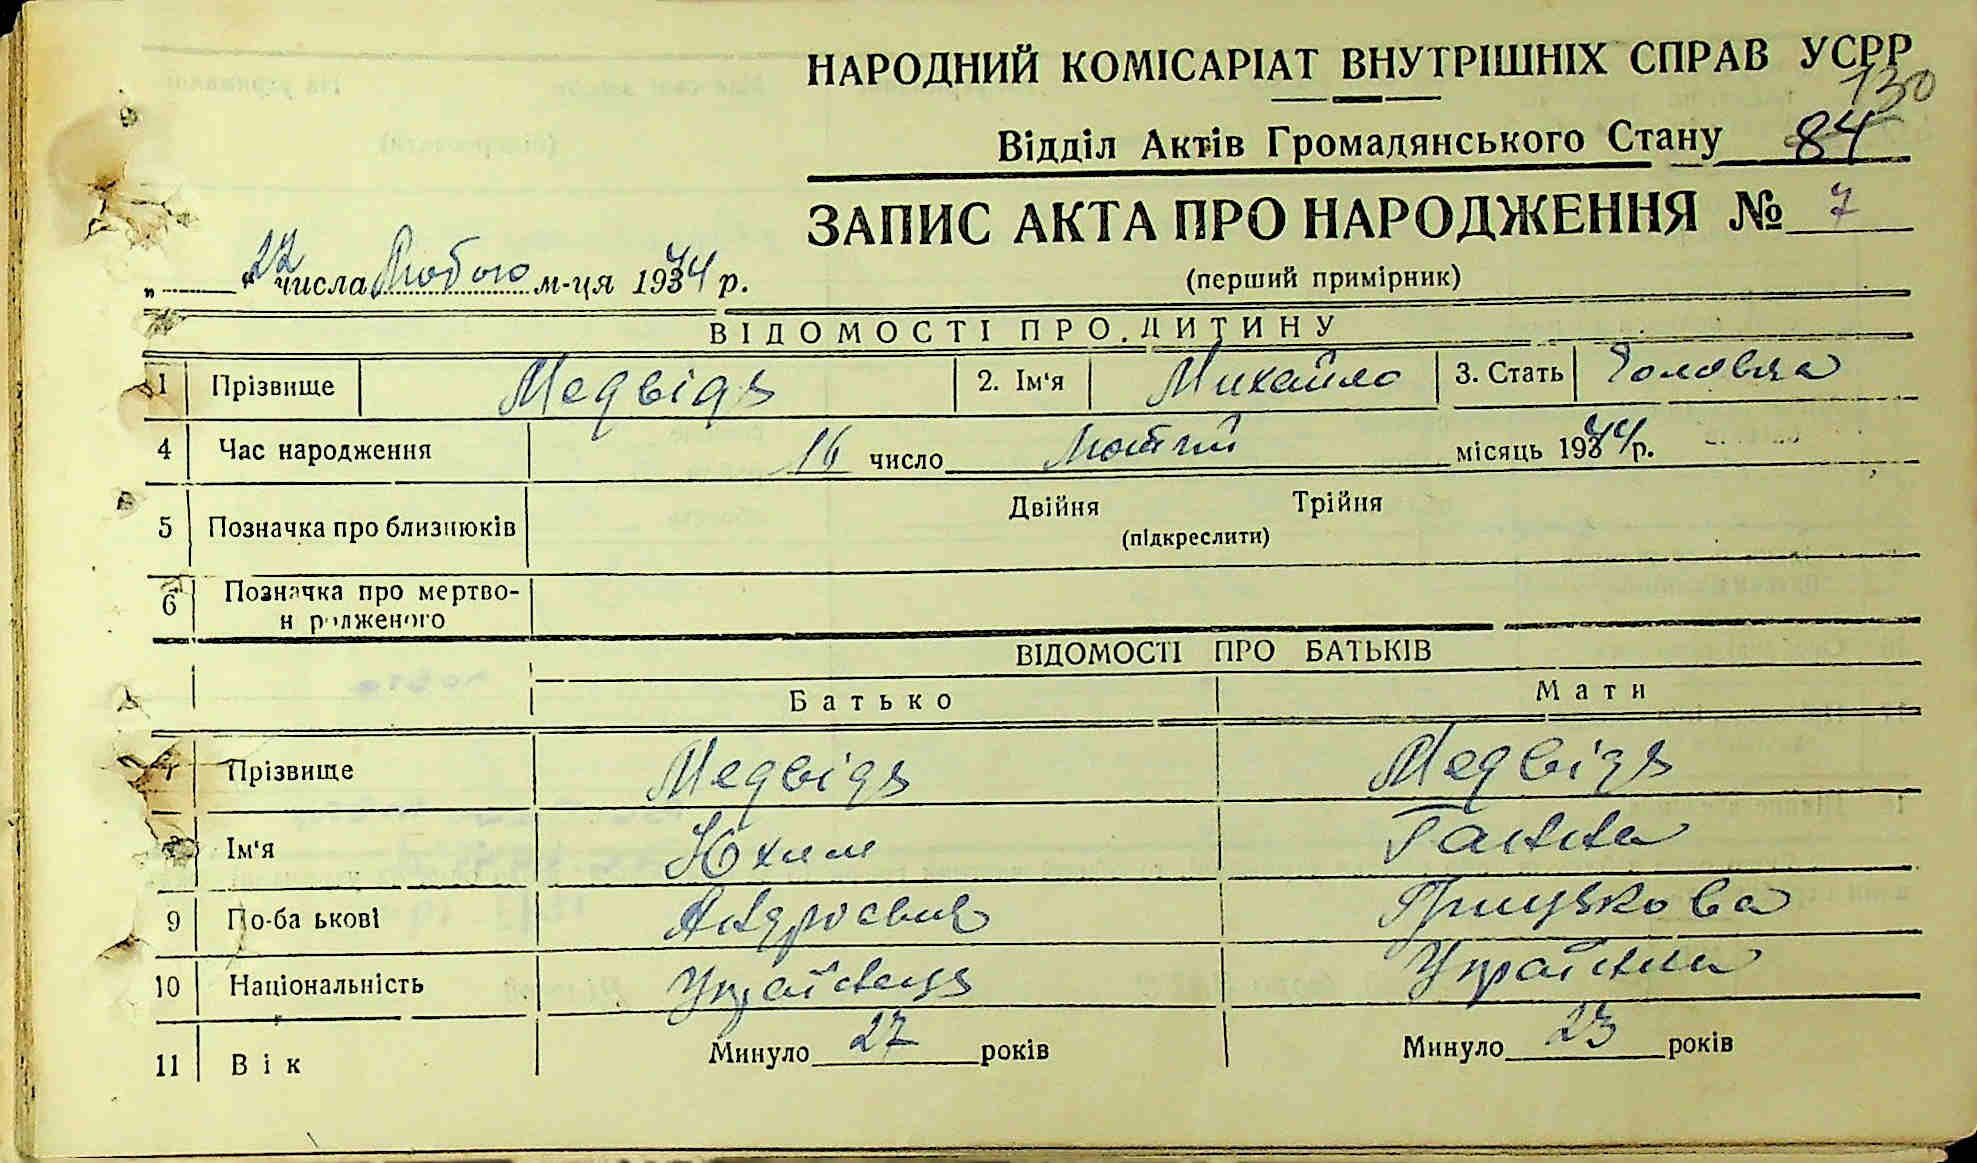 НАРОДНИЙ КОМІСАРІАТ ВНУТРІШНІХ СПРАВ УСРР
130
Відділ Актів Громадянського Стану 84
ЗАПИС АКТА ПРО НАРОДЖЕННЯ № 7
(перший примірник)
„ 22 “ числа Лютого м-ця 1944 р.
ВІДОМОСТІ ПРО ДИТИНУ
1 Прізвище Медвідь 2. Ім'я Михайло 3. Стать Чоловіча
4 Час народження 16 число Лютий місяць 1944 р.
5 Позначка про близнюків Двійня Трійня
(підкреслити)
6 Позначка про мертво-
н р дженого
ВІДОМОСТІ ПРО БАТЬКІВ
Батько Мати
7 Прізвище Медвідь Медвідь
Ім'я Юхим Ганна
9 По-ба ькові Андрієвич Грицькова
10 Національність Українець Українка
11 Вік Минуло 27 років Минуло 23 років